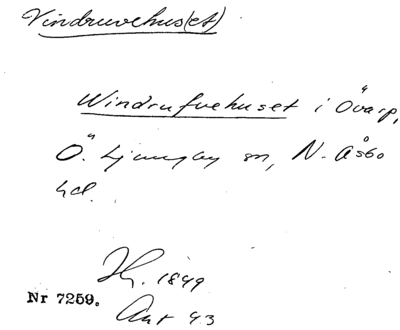 Vindruvehus(et)
Windrufvehuset i Övarp,
Ö. Ljungby sn, N. Åsbo
hd.
1849
Nr 7259.
43